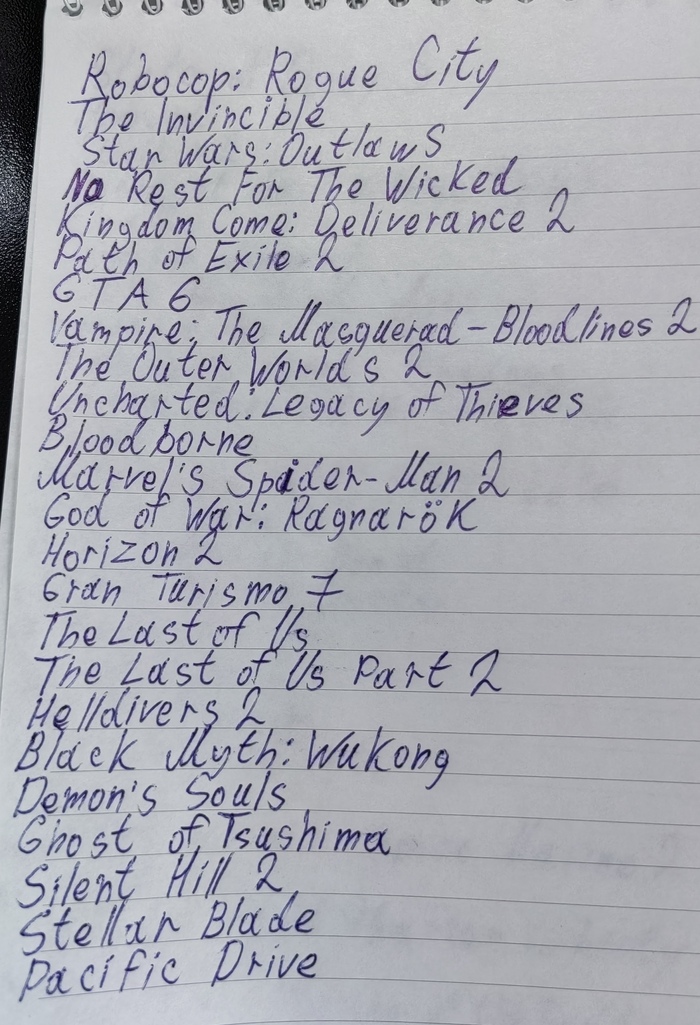 Robocop: Rogue City
The Invincible
Star Wars: Outlaws
No Rest For The Wicked
Kingdom Come: Deliverance 2
Path of Exile 2
GTA 6
Vampire: The Masquerad - Bloodlines 2
The Outer Worlds 2
Uncharted: Legacy of Thieves
Bloodborne
Marvel's Spider-Man 2
God of War: Ragnarök
Horizon 2
Gran Turismo 7
The Last of Us
The Last of Us Part 2
Helldivers 2
Black Myth: Wukong
Demon's Souls
Ghost of Tsushima
Silent Hill 2
Stellar Blade
Pacific Drive